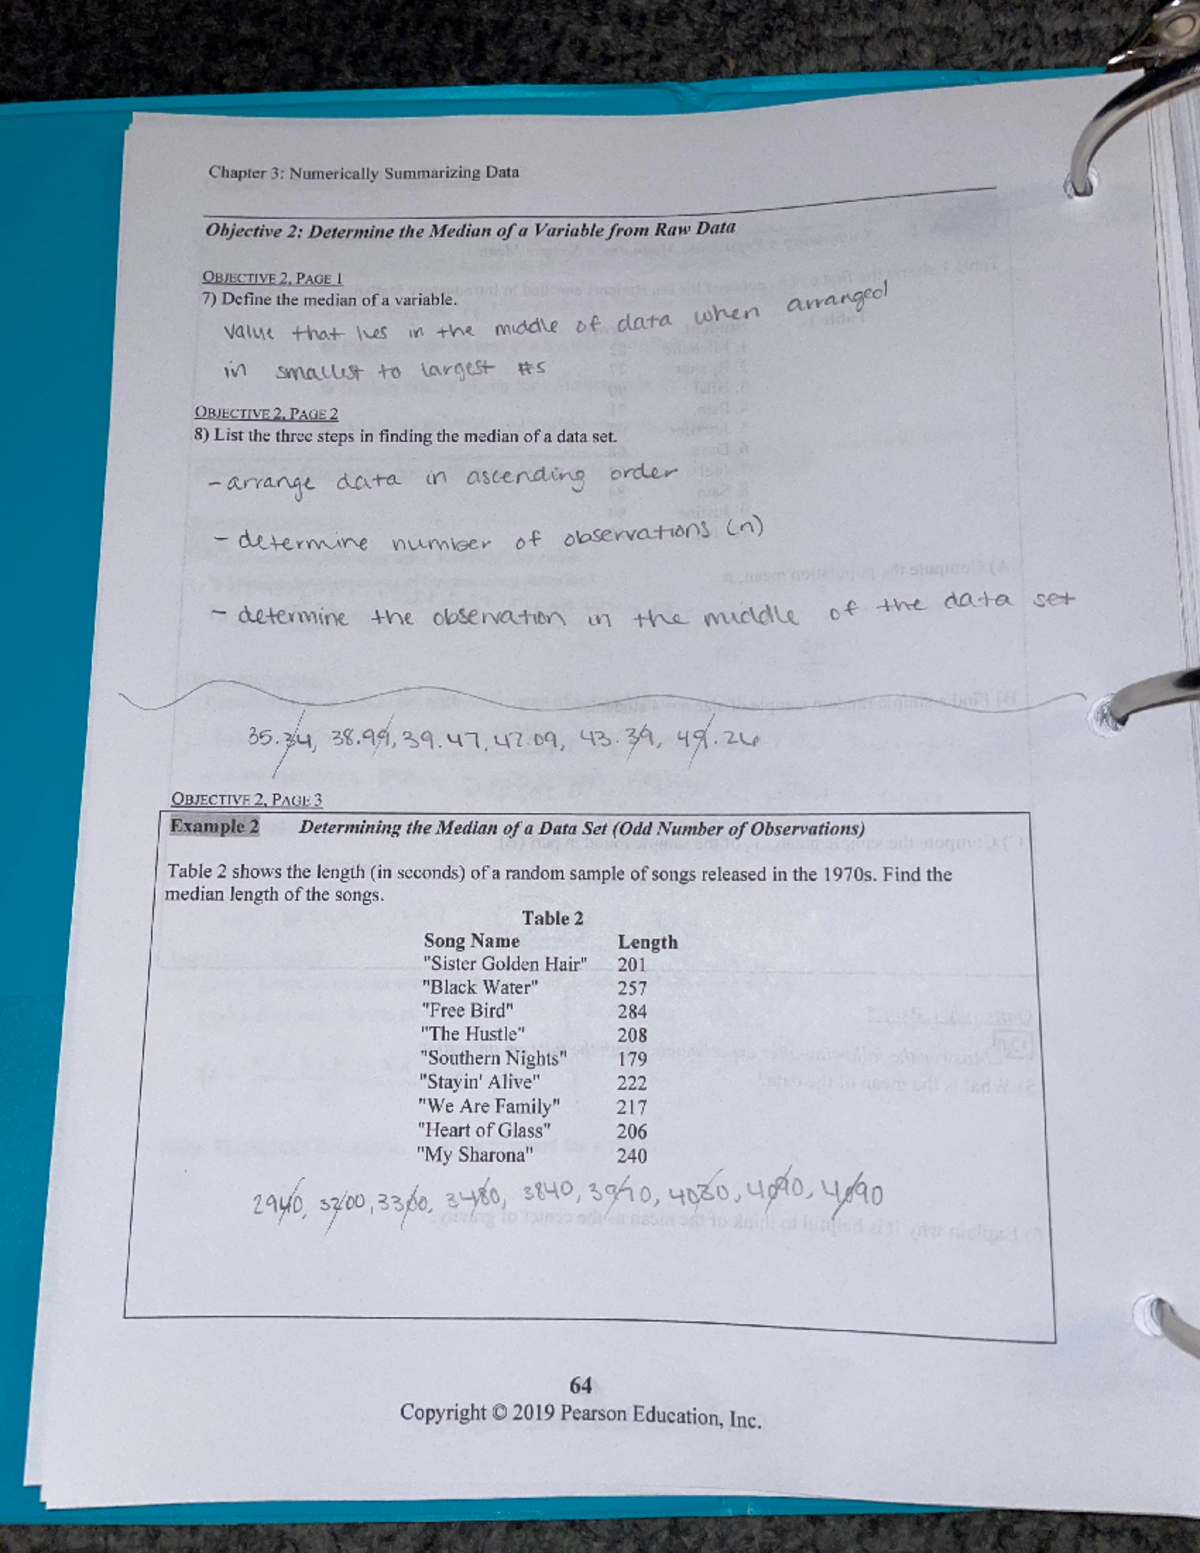 Chapter 3: Numerically Summarizing Data
Objective 2: Determine the Median of a Variable from Raw Data
OBJECTIVE 2, PAGE 1
7) Define the median of a variable.
value that lies in the middle of data when arranged
in smallest to largest #s
OBJECTIVE 2, PAGE 2
8) List the three steps in finding the median of a data set.
- arrange data in ascending order
- determine number of observations (n)
- determine the observation in the middle of the data set
35.34, 38.99, 39.47, 42.09, 43.39, 49.26
OBJECTIVE 2, PAGE 3
Example 2 Determining the Median of a Data Set (Odd Number of Observations)
Table 2 shows the length (in seconds) of a random sample of songs released in the 1970s. Find the
median length of the songs.
Table 2
Song Name Length
"Sister Golden Hair" 201
"Black Water" 257
"Free Bird" 284
"The Hustle" 208
"Southern Nights" 179
"Stayin' Alive" 222
"We Are Family" 217
"Heart of Glass" 206
"My Sharona" 240
2940, 3200, 3300, 3480, 3840, 3970, 4030, 4090, 4090
64
Copyright © 2019 Pearson Education, Inc.